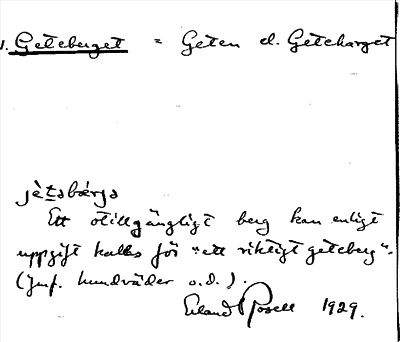 1. Geteberget = Geten el. Geteharget
jè̀tabǽrja
Ett otillgängligt berg kan enligt
uppgift kallas för "ett riktigt geteberg".
(Jmf. hundväder o.d.).
Erland Rosell 1929.